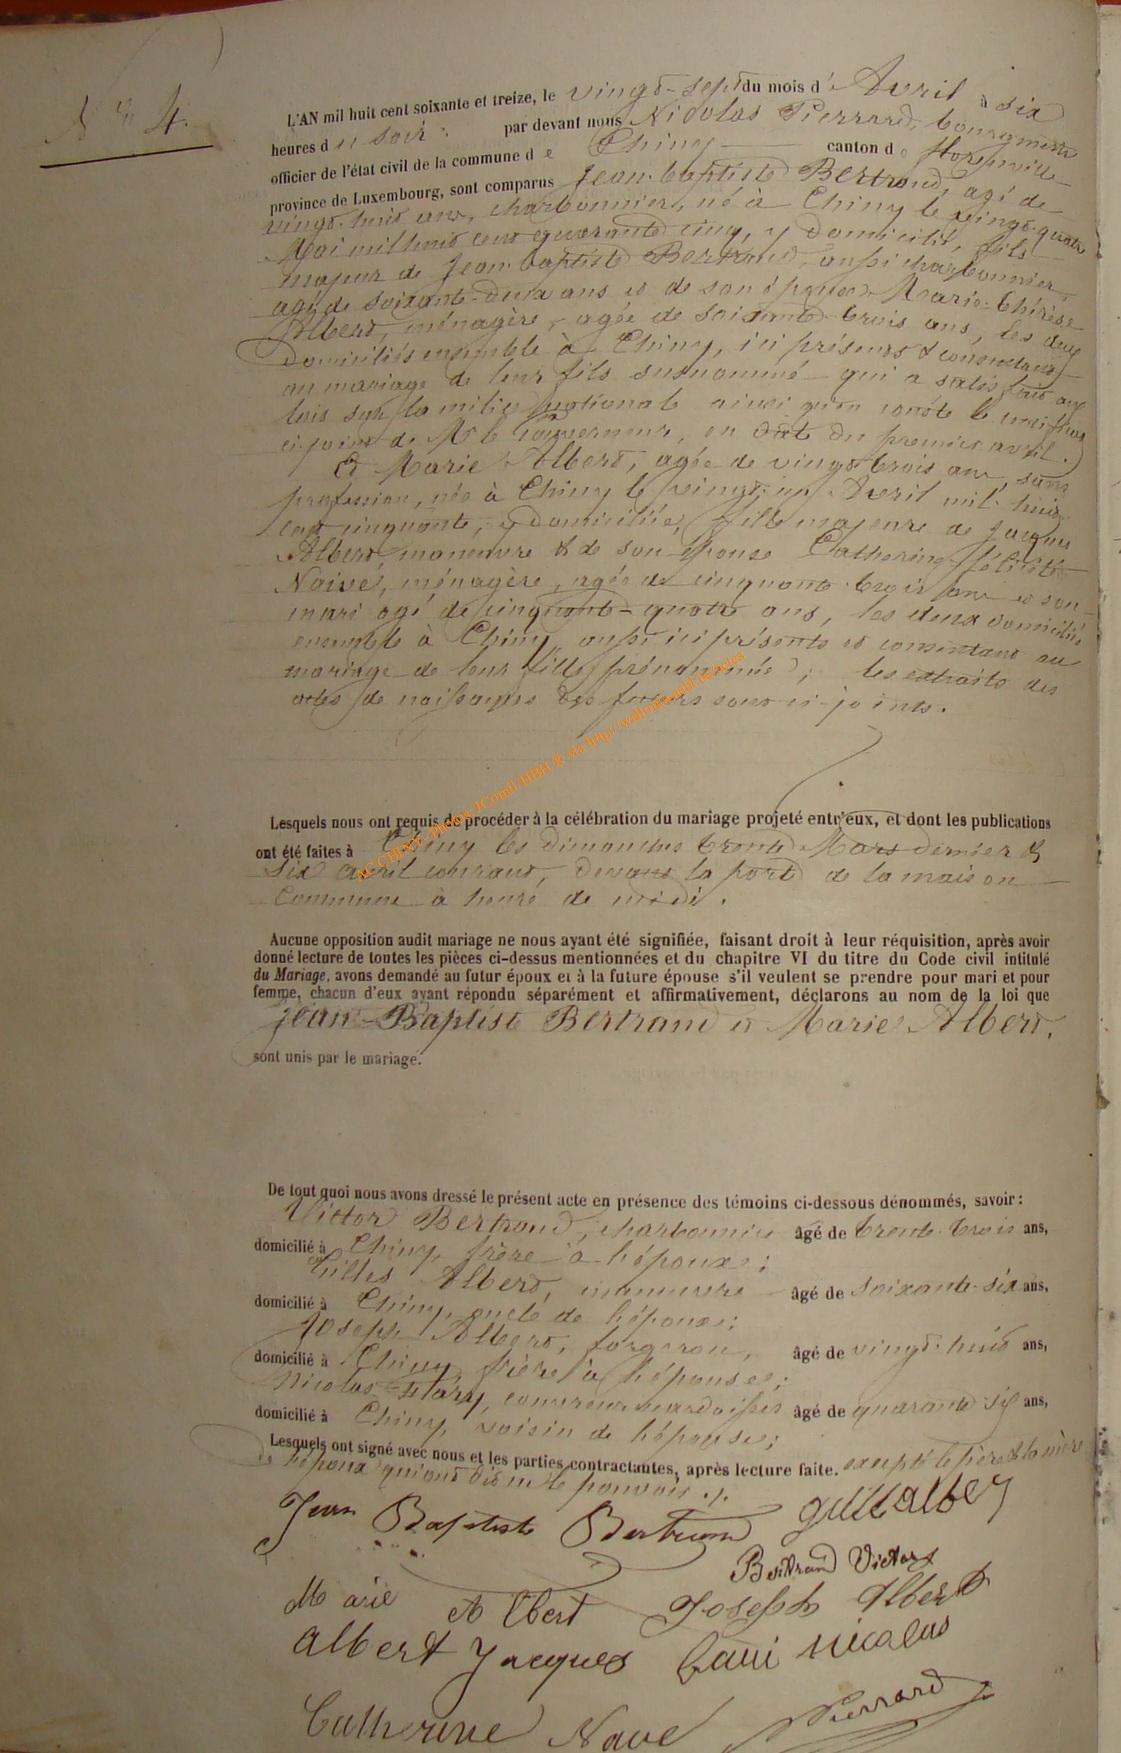 N° 4.
L'AN mil huit cent soixante et treize, le vingt-sept du mois d'Avril à six
heures du soir par devant nous Nicolas Pierrard, bourgmestre
officier de l'état civil de la commune de Chiny canton de Florenville
province de Luxembourg, sont comparus Jean-baptiste Bertrand, agé de
vingt-huit ans, charbonnier, né à Chiny le vingt-quatre
Mai mil huit cent quarante cinq, y domicilié, fils
majeur de Jean baptiste Bertrand, aussi charbonnier,
agé de soixante-deux ans et de son épouse Marie-Thérèse
Albert, ménagère, agée de soixante-trois ans, les deux
domiciliés ensemble à Chiny, ici présents & consentans
au mariage de leur fils susnommé qui a satisfait aux
lois sur la milice nationale ainsi qu'on conste le certificat
ci-joint de Mr le Gouverneur, en date du premier avril.
Et Marie Albert, agée de vingt trois ans, sans
profession, née à Chiny le vingt-un Avril mil huit
cent cinquante, y domiciliée, fille majeure de Jacques
Albert, manœuvre & de son épouse Catherine Félicité
Naivé, ménagère, agée de cinquante-trois ans et son
mari agé de cinquante-quatre ans, les deux domiciliés
ensemble à Chiny, aussi ici présents et consentans au
mariage de leur fille prénommée; les extraits des
actes de naissances des futurs sont ci-joints.
Lesquels nous ont requis de procéder à la célébration du mariage projeté entr'eux, et dont les publications
ont été faites à Chiny les dimanches trente Mars dernier &
six avril courant, devant la porte de la maison
commune à heure de midi.
Aucune opposition audit mariage ne nous ayant été signifiée, faisant droit à leur réquisition, après avoir
donné lecture de toutes les pièces ci-dessus mentionnées et du chapitre VI du titre du Code civil intitulé
du Mariage, avons demandé au futur époux et à la future épouse s'il veulent se prendre pour mari et pour
femme, chacun d'eux ayant répondu séparément et affirmativement, déclarons au nom de la loi que
Jean-Baptiste Bertrand et Marie Albert,
sont unis par le mariage.
De tout quoi nous avons dressé le présent acte en présence des témoins ci-dessous dénommés, savoir :
Victor Bertrand, charbonnier âgé de trente-trois ans,
domicilié à Chiny, frère à l'époux;
Gilles Albert, manœuvre âgé de soixante-six ans,
domicilié à Chiny, oncle de l'époux;
Joseph Albert, forgeron, âgé de vingt-huit ans,
domicilié à Chiny frère à l'épouse;
Nicolas couvreur en ardoises âgé de quarante-six ans,
domicilié à Chiny, voisin de l'épouse;
Lesquels ont signé avec nous et les parties contractantes, après lecture faite. excepté le père & la mère
de l'époux qui ont dit ne le pouvoir./.
Jean Baptiste Bertrand Gille albert
Bertrand Victor
Marie Albert Joseph Albert
albert Jacques nicolas
Catherine Navé Pierrard
AC CHINY - Photos JComil HBH & via http://wallonica.org/ les actes